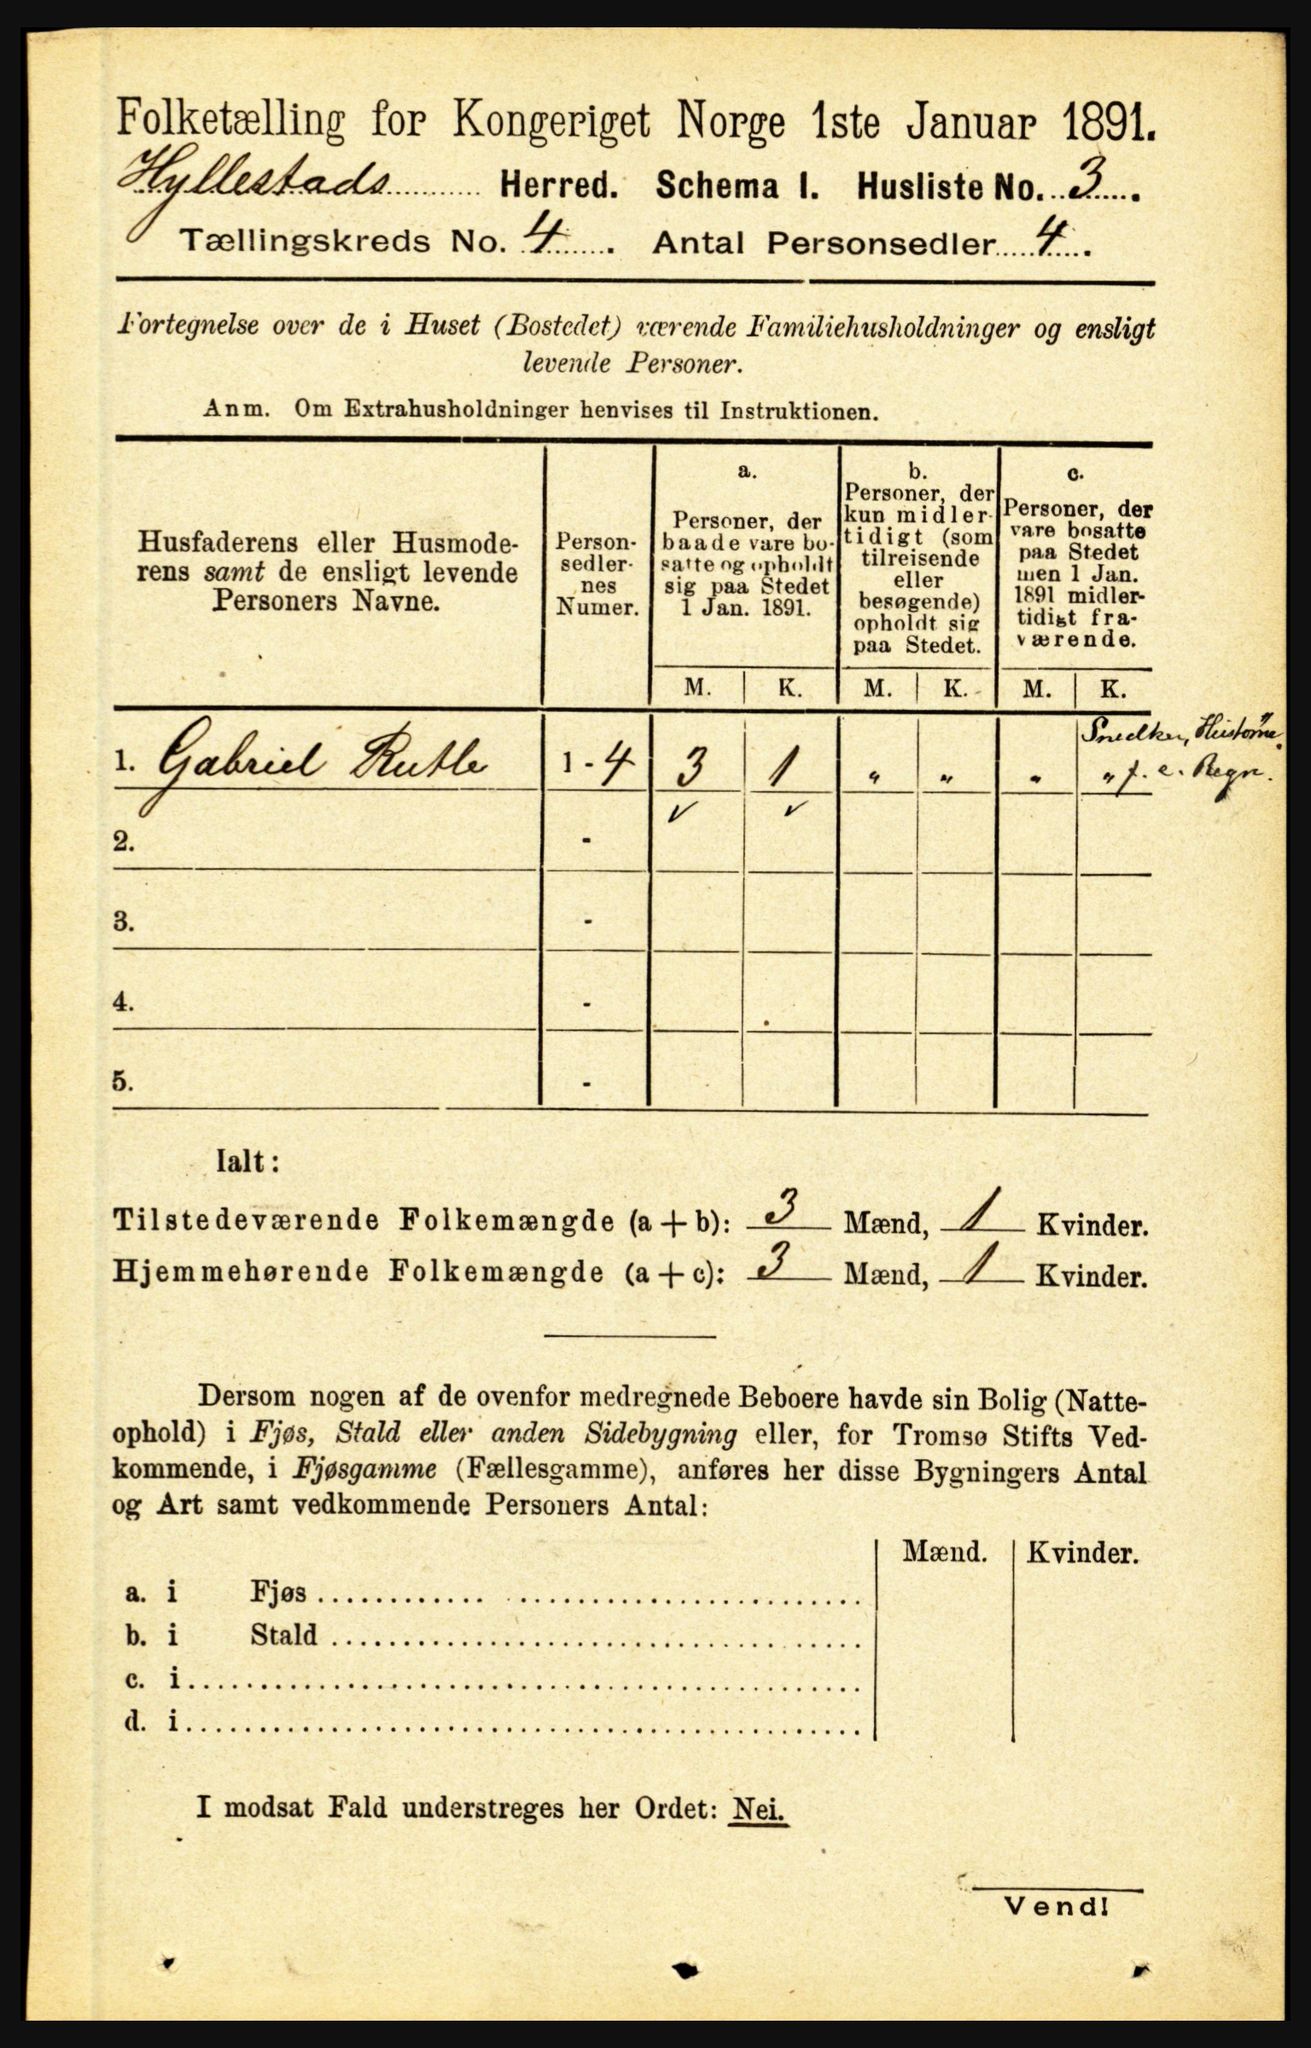 Folketælling for Kongeriget Norge 1ste Januar 1891.
Hyllestads Herred. Schema I. Husliste No. 3.
Tællingskreds No. 4. Antal Personsedler 4.
Fortegnelse over de i Huset (Bostedet) værende Familiehusholdninger og ensligt
levende Personer.
Anm. Om Extrahusholdninger henvises til Instruktionen.
Husfaderens eller Husmode-
rens samt de ensligt levende
Personers Navne.
Person-
sedler-
nes
Numer.
a.
Personer, der
baade vare bo-
satte og opholdt
sig paa Stedet
1 Jan. 1891.
b.
Personer, der
kun midler-
tidigt (som
tilreisende
eller
besøgende)
opholdt sig
paa Stedet.
c.
Personer, der
vare bosatte
paa Stedet
men 1 Jan.
1891 midler-
tidigt fra-
værende.
M. K. M. K. M. K.
Snedker,
1. Gabriel Rutle 1 - 4 3 1 " " " " f. e. Regn.
✓ ✓
2. -
3. -
4. -
5. -
Ialt:
Tilstedeværende Folkemængde (a + b): 3 Mænd, 1 Kvinder.
Hjemmehørende Folkemængde (a + c): 3 Mænd, 1 Kvinder.
Dersom nogen af de ovenfor medregnede Beboere havde sin Bolig (Natte-
ophold) i Fjøs, Stald eller anden Sidebygning eller, for Tromsø Stifts Ved-
kommende, i Fjøsgamme (Fællesgamme), anføres her disse Bygningers Antal
og Art samt vedkommende Personers Antal:
Mænd. Kvinder.
a. i Fjøs
b. i Stald
c. i
d. i
I modsat Fald understreges her Ordet: Nei.
Vend!